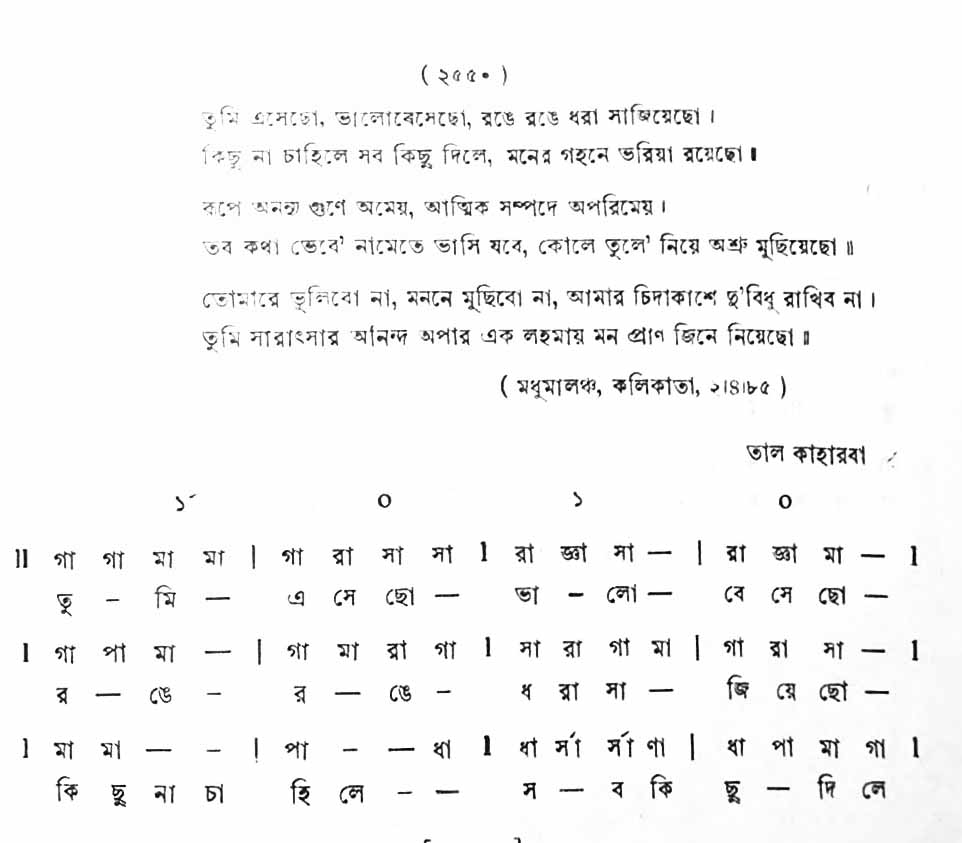 ( ২৫৫০ )
তুমি এসেছো, ভালোবেসেছো, রঙে রঙে ধরা সাজিয়েছো।
কিছু না চাহিলে সব কিছু দিলে, মনের গহনে ভরিয়া রয়েছো॥
রূপে অনন্য গুণে অমেয়, আত্মিক সম্পদে অপরিমেয়।
তব কথা ভেবে' নামেতে ভাসি যবে, কোলে তুলে' নিয়ে অশ্রু মুছিয়েছো॥
তোমারে ভুলিবো না, মননে মুছিবো না, আমার চিদাকাশে দু'বিধু রাখিব না।
তুমি সারাৎসার আনন্দ অপার এক লহমায় মন প্রাণ জিনে নিয়েছো॥
( মধুমালঞ্চ, কলিকাতা, ২।৪।৮৫ )
তাল কাহারবা
১´ ০ ১ ০
II গা গা মা মা | গা রা সা সা I রা জ্ঞা সা — | রা জ্ঞা মা — I
তু - মি — এ সে ছো — ভা - লো — বে সে ছো —
I গা পা মা — | গা মা রা গা I সা রা গা মা | গা রা সা — I
র — ঙে - র — ঙে - ধ রা সা — জি য়ে ছো —
I মা মা — - | পা - — ধা I ধা র্সা র্সা ণা | ধা পা মা গা I
কি ছু না চা হি লে - — স — ব কি ছু — দি লে